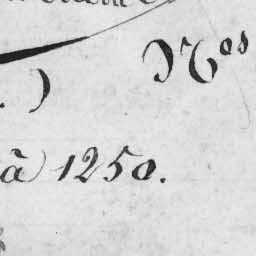 N.os
)
à 1250.